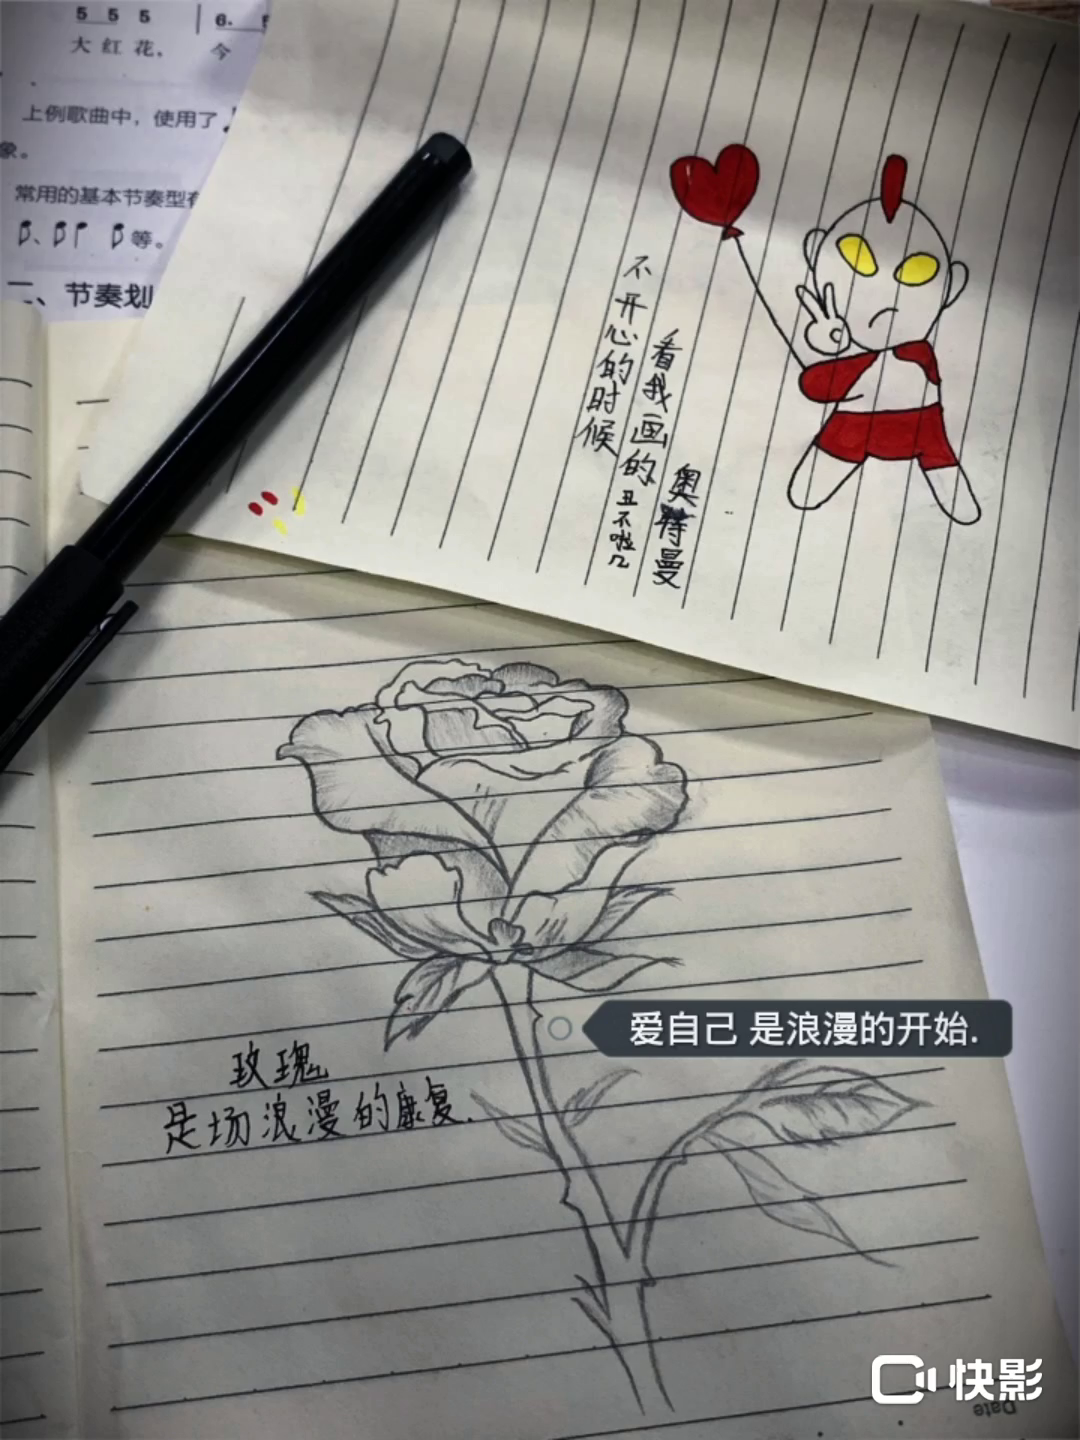 5 5 5 | 6.
大 红 花， 今
上例歌曲中，使用了
象。
常用的基本节奏型有
等。
二、节奏划
不开心的时候
看我画的丑不啦几
奥特曼
玫瑰
是场浪漫的康复.
爱自己 是浪漫的开始.
快影
Date